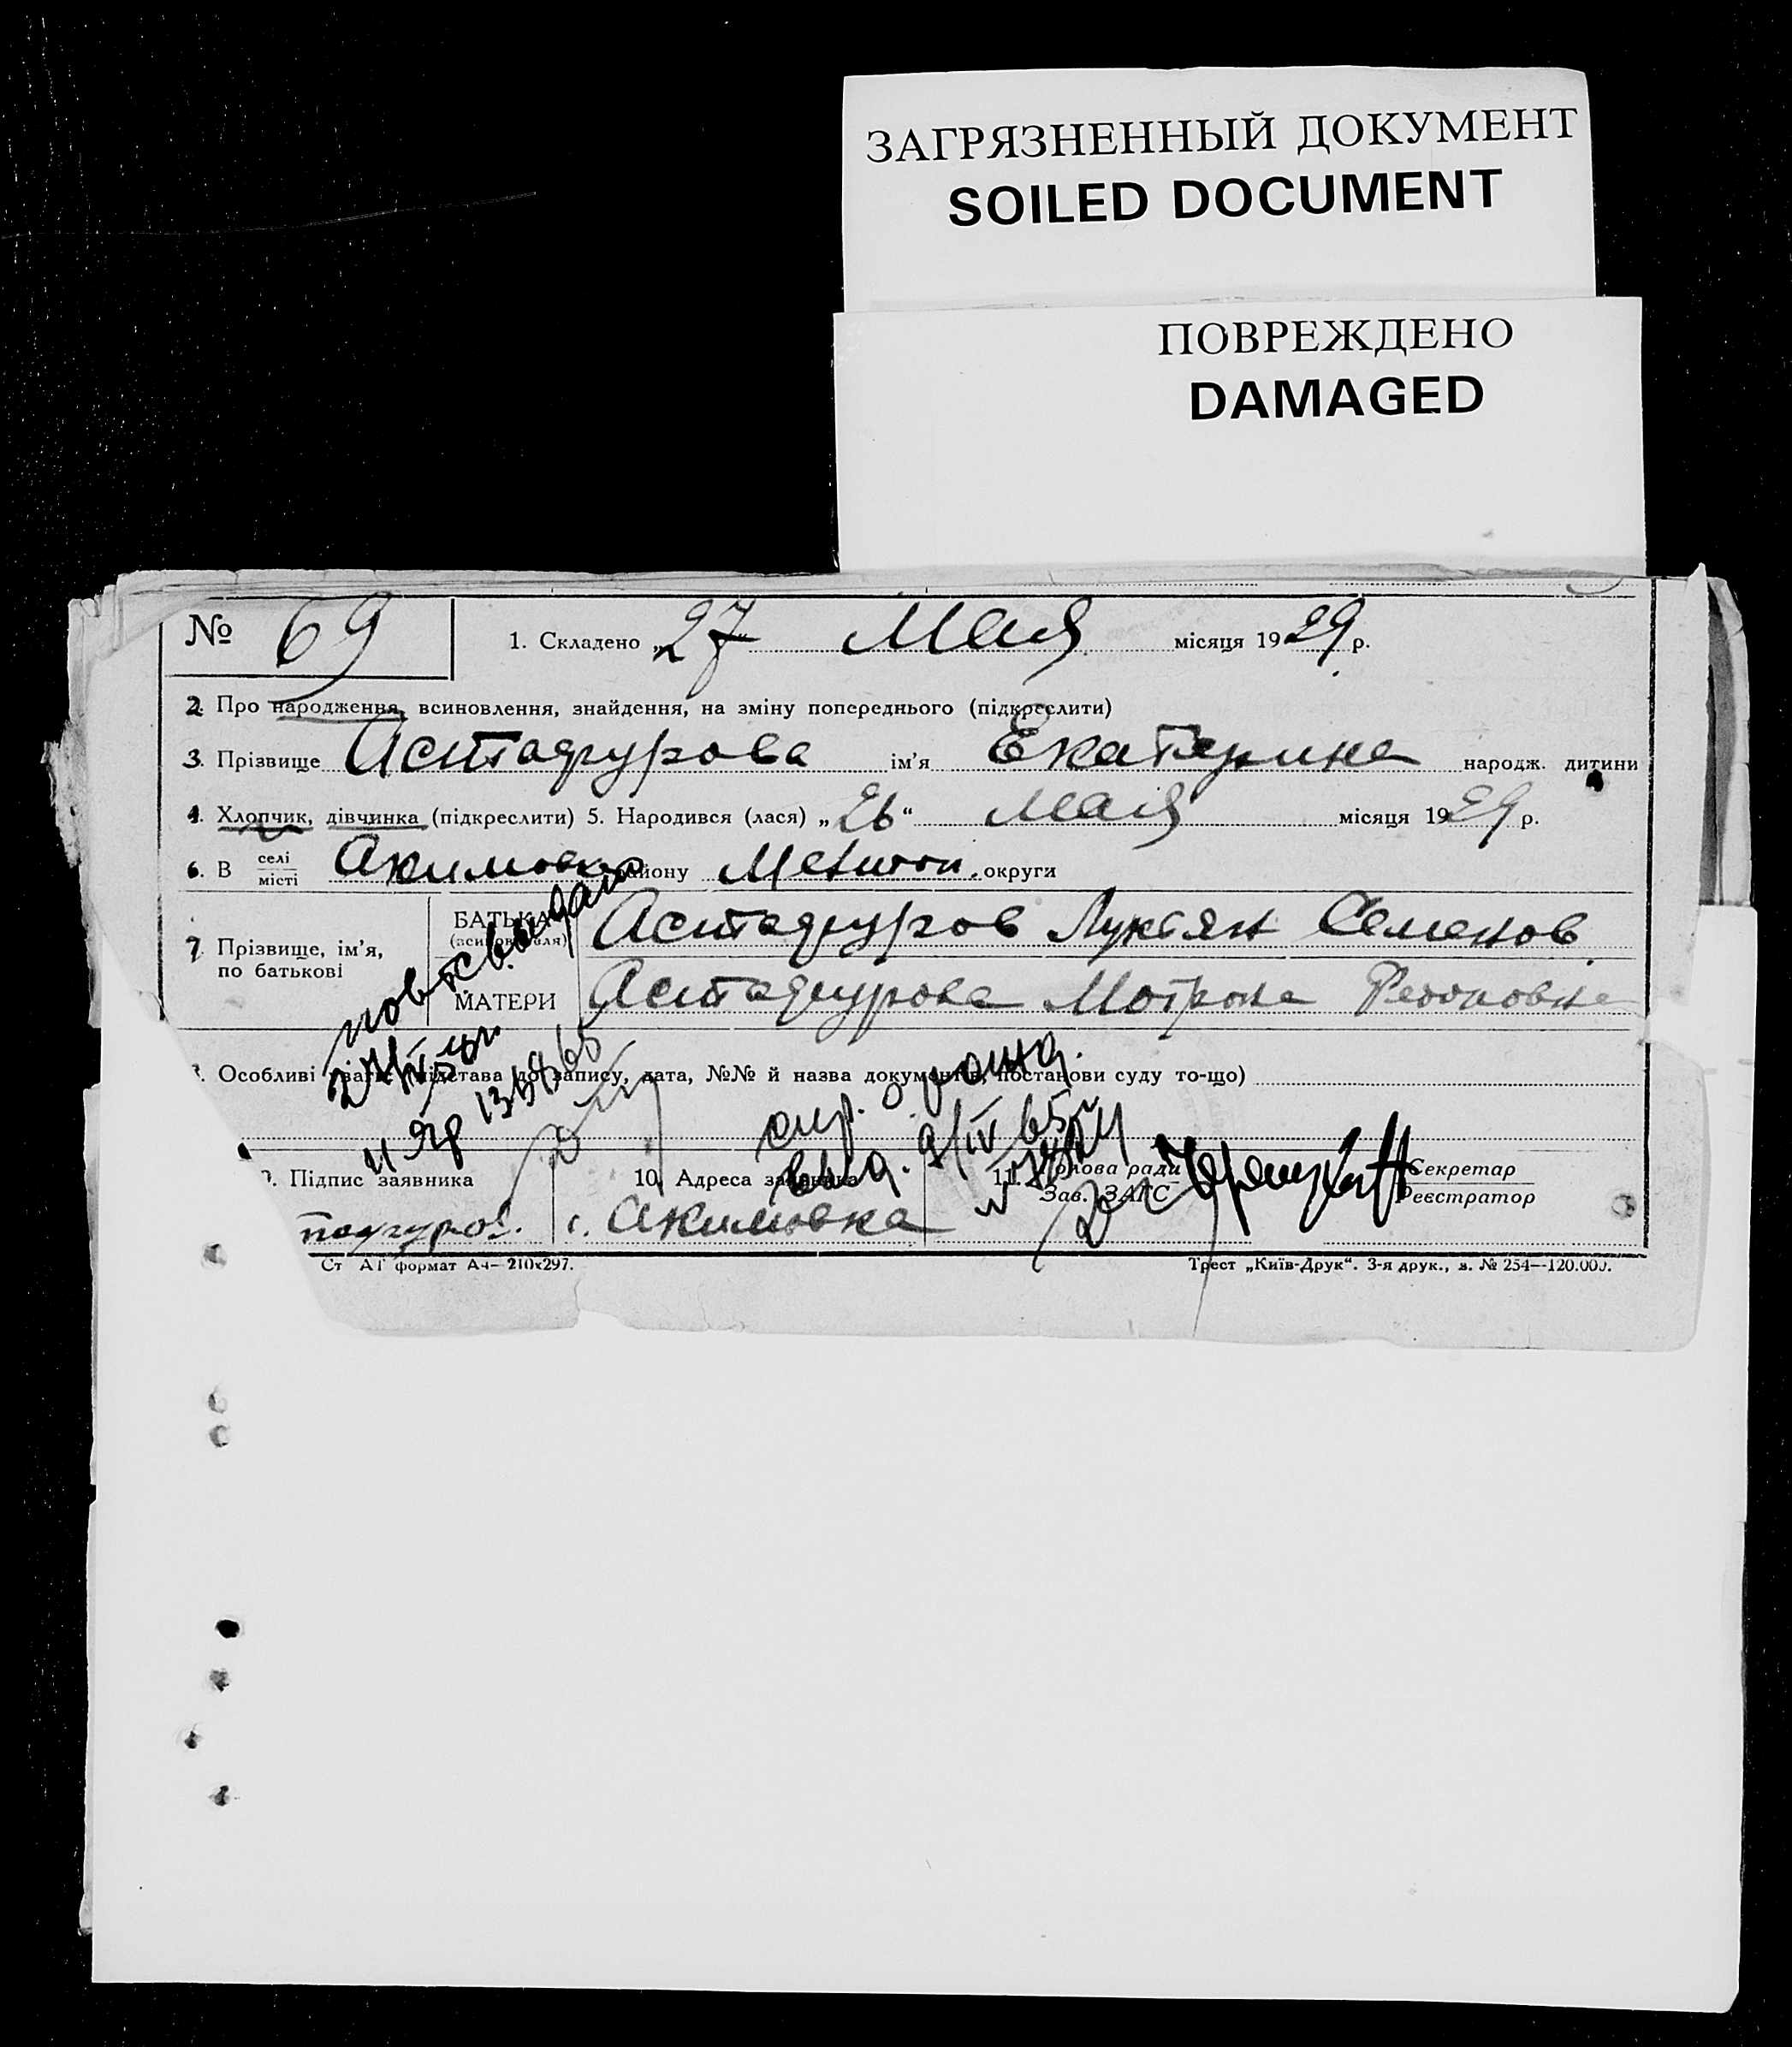 ЗАГРЯЗНЕННЫЙ ДОКУМЕНТ
SOILED DOCUMENT
ПОВРЕЖДЕНО
DAMAGED
№ 69
1. Складено „27" Мая місяця 1929 р.
2. Про народження, всиновлення, знайдення, на зміну попереднього (підкреслити)
3. Прізвище Астафурова ім'я Екатерина народж. дитини
4. Хлопчик, дівчинка (підкреслити) 5. Народився (лася) „26" Мая місяця 1929 р.
6. В селі місті Акимовк району Мелитоп. округи
7. Прізвище, ім'я, по батькові
БАТЬКА Астафуров Лукьян Семенов.
МАТЕРИ Астафурова Мотрона
повт. св. выдано
Особливі до запису, дата, №№ й назва документів, постанови суду то-що)
спр. о рожд.
выд. 9/IV 65г
Підпис заявника
10. Адреса заявника
11. Голова ради
Зав. ЗАГС
Секретар
Реєстратор
тафуров.
с. Акимовка
Ст АТ формат А4— 210х297.
Трест „Київ-Друк“. 3-я друк., з. № 254—120.000.